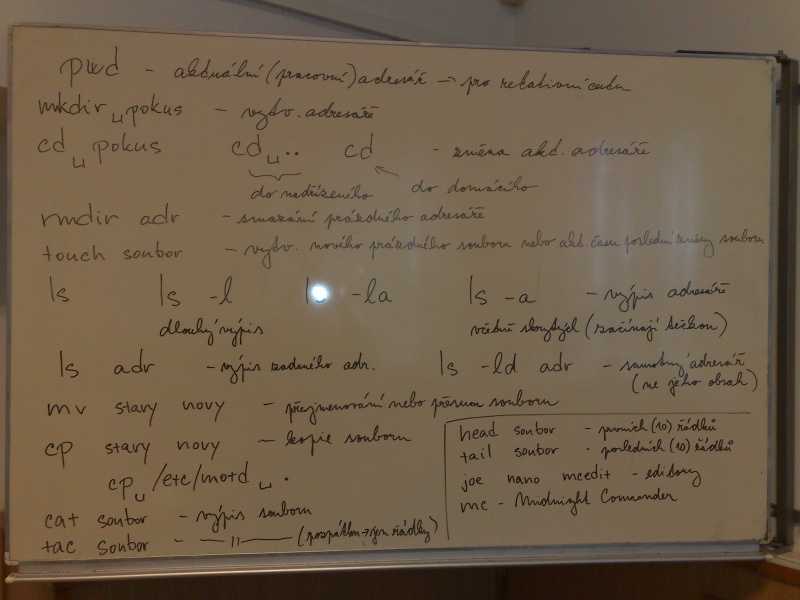 pwd - aktuální (pracovní) adresář → pro relativní cestu
mkdir␣pokus - vytv. adresáře
cd␣pokus cd␣.. cd - změna akt. adresáře
do nadřízeného do domácího
rmdir adr - smazání prázdného adresáře
touch soubor - vytv. nového prázdného souboru nebo akt. času poslední změny souboru
ls ls -l ls -la ls -a - výpis adresáře
dlouhý výpis včetně skrytých (začínají tečkou)
ls adr - výpis zadaného adr. ls -ld adr - samotný adresář
(ne jeho obsah)
mv starý nový - přejmenování nebo přesun souboru
cp starý nový - kopie souboru
cp␣/etc/motd␣.
cat soubor - výpis souboru
tac soubor - —〃— (pozpátku → jen řádky)
head soubor - prvních (10) řádků
tail soubor - posledních (10) řádků
joe nano mcedit - editory
mc - Midnight Commander